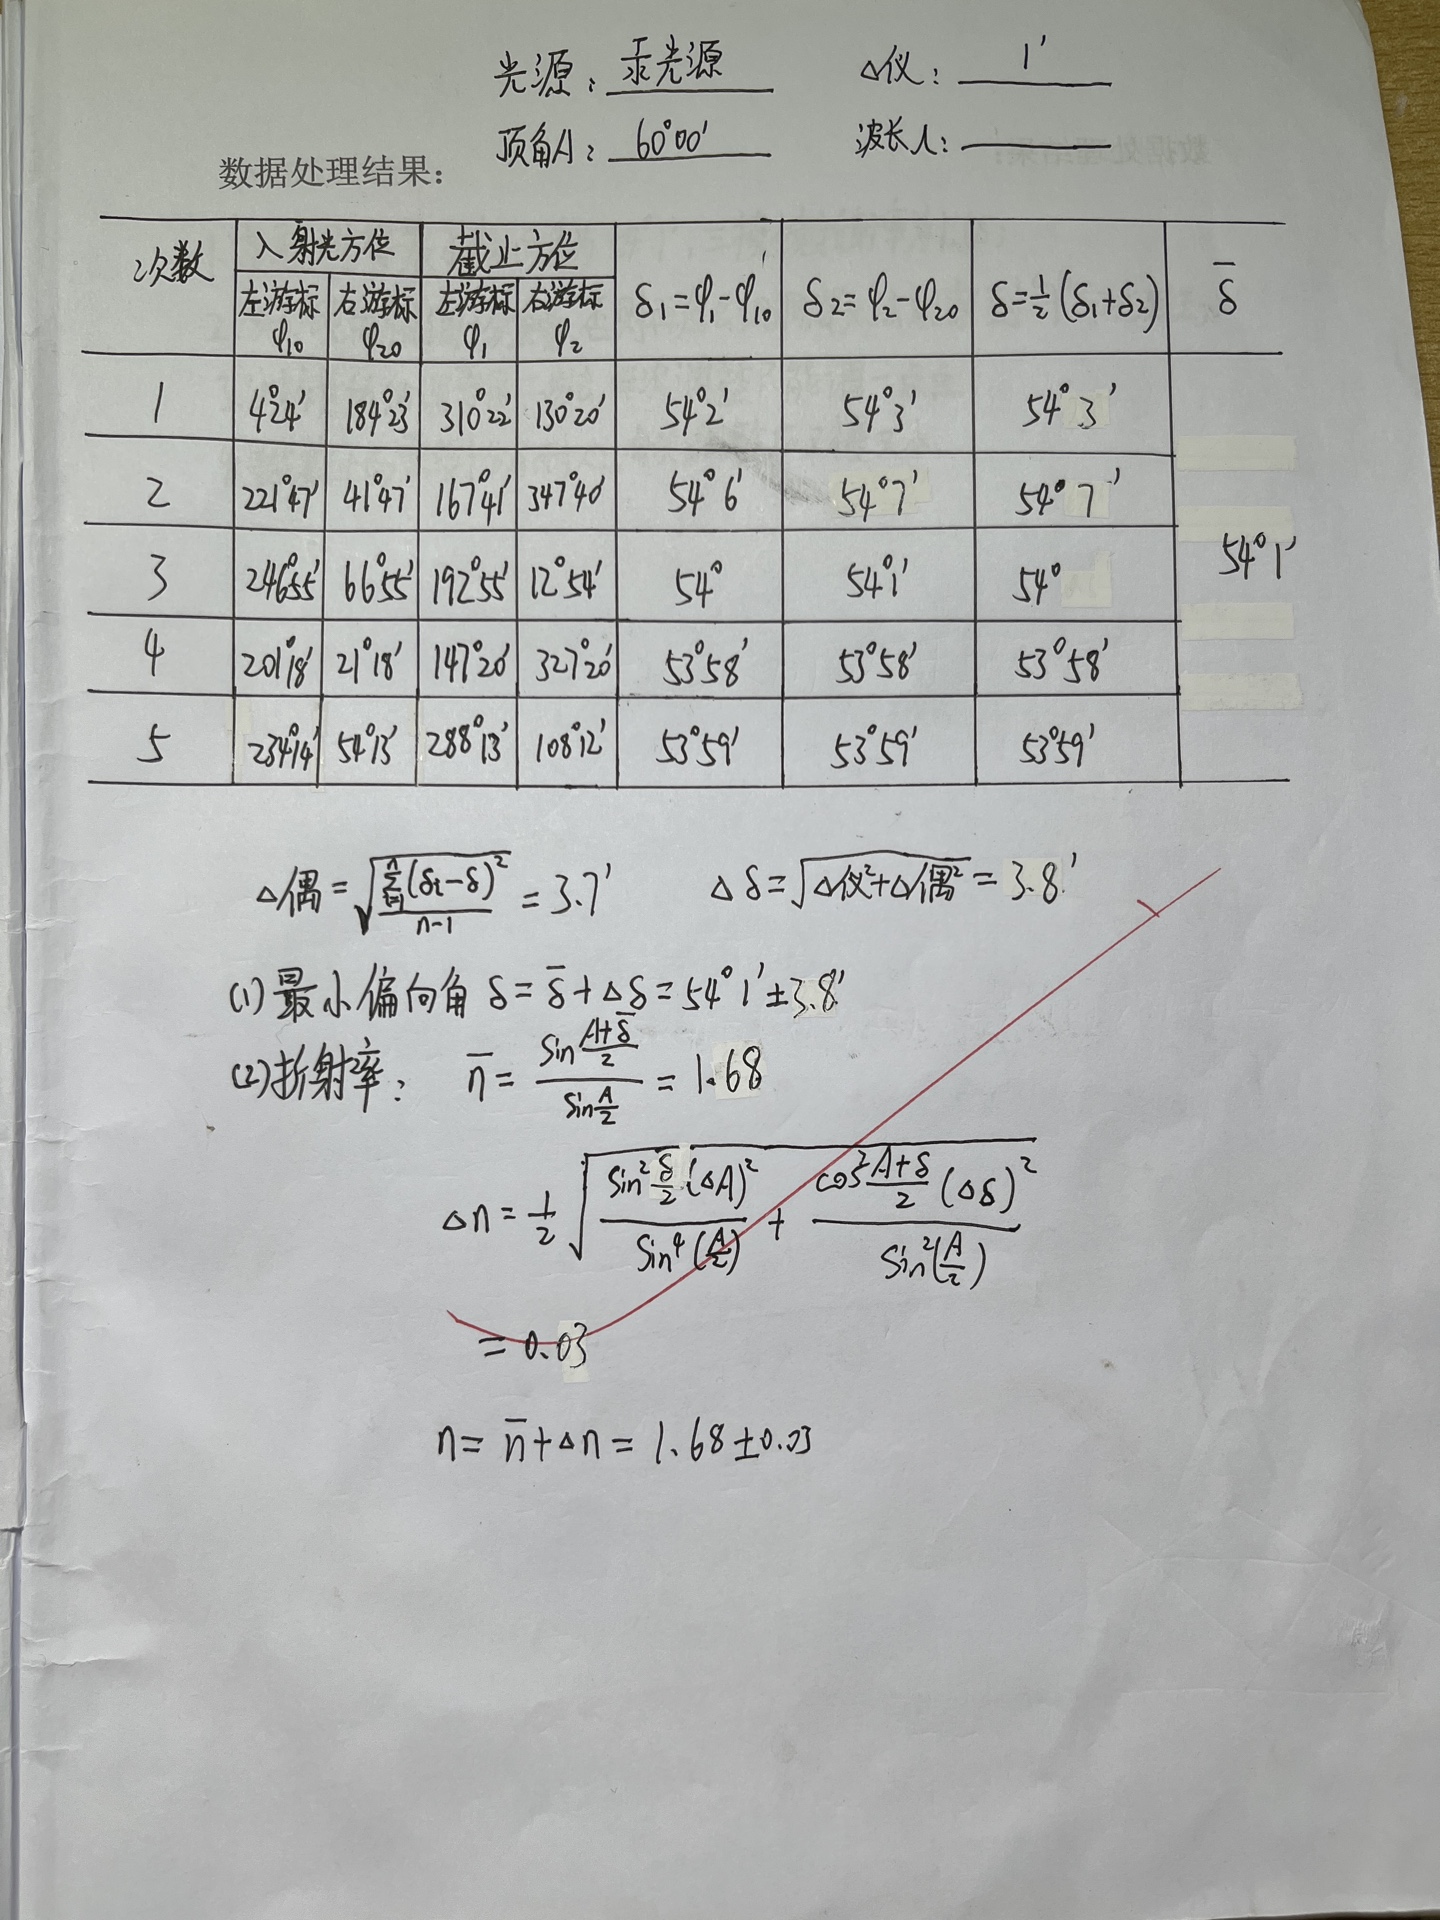 光源：汞光源 △仪：1′
顶角A：60°00′ 波长λ：
数据处理结果：
次数 入射光方位 截止方位 δ₁=φ₁-φ₁₀′ δ₂=φ₂-φ₂₀ δ=½(δ₁+δ₂) δ̄
左游标φ₁₀ 右游标φ₂₀ 左游标φ₁ 右游标φ₂
1 4°24′ 184°23′ 310°22′ 130°20′ 54°2′ 54°3′ 54°3′
2 221°47′ 41°47′ 167°41′ 347°40′ 54°6′ 54°7′ 54°7′
3 246°55′ 66°55′ 192°55′ 12°54′ 54° 54°1′ 54° 54°1′
4 201°18′ 21°18′ 147°20′ 327°20′ 53°58′ 53°58′ 53°58′
5 234°14′ 54°13′ 288°13′ 108°12′ 53°59′ 53°59′ 53°59′
△偶=√(Σⁿᵢ₌₁(δᵢ-δ)²/(n-1))=3.7′ △δ=√(△仪²+△偶²)=3.8′
(1)最小偏向角 δ=δ̄+△δ=54°1′±3.8′
(2)折射率： n̄=sin((A+δ̄)/2)/sin(A/2)=1.68
△n=½√(sin²(δ/2)(△A)²/sin⁴(A/2)+cos²((A+δ)/2)(△δ)²/sin²(A/2))
=0.03
n=n̄+△n=1.68±0.03